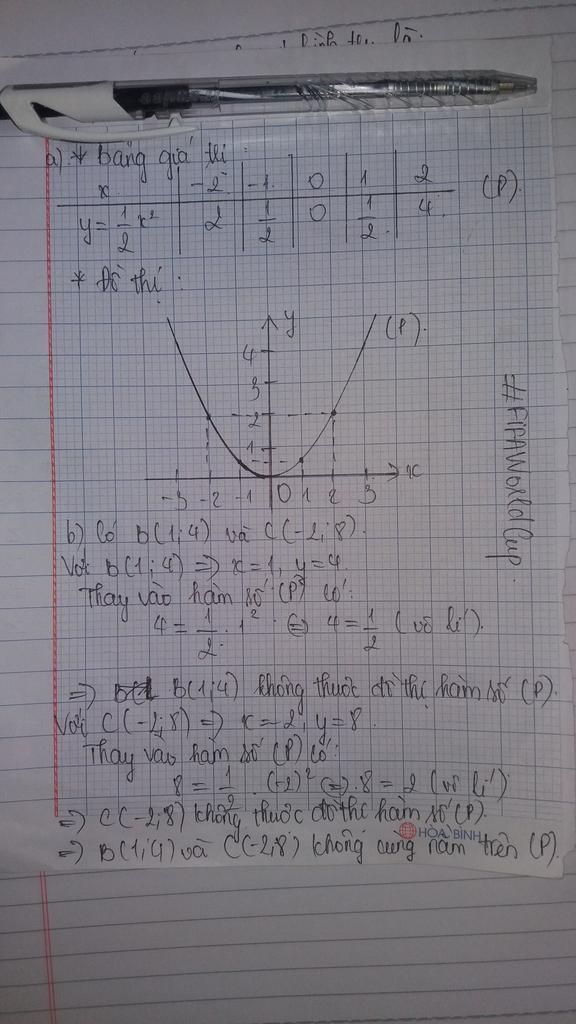 a) * Bảng giá trị:
x -2 -1 0 1 2 (P).
y = 1/2 x² 2 1/2 0 1/2 4
* Đồ thị:
y (P).
4
3
2
1
-3 -2 -1 0 1 2 3 x
#FIFAWorldCup.
b) Có B(1;4) và C(-2;8).
Với B(1;4) => x=1, y=4.
Thay vào hàm số (P) có:
4 = 1/2 . 1² <=> 4 = 1/2 (vô lí).
=> B(1;4) không thuộc đồ thị hàm số (P).
Với C(-2;8) => x=-2, y=8.
Thay vào hàm số (P) có:
8 = 1/2 . (-2)² <=> 8 = 2 (vô lí)
=> C(-2;8) không thuộc đồ thị hàm số (P).
HÒA BÌNH
=> B(1;4) và C(-2;8) không cùng nằm trên (P).